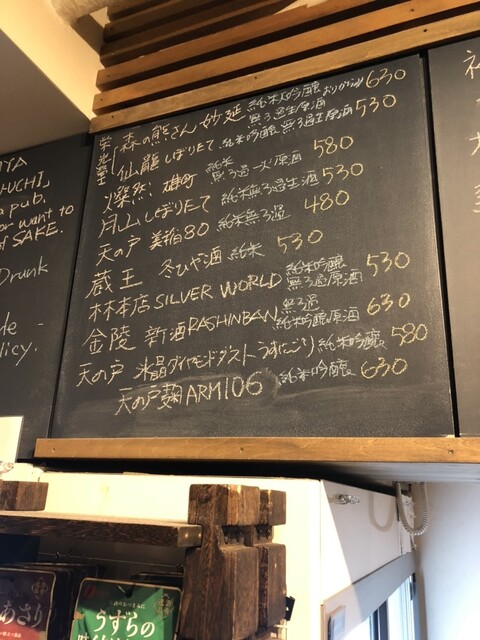 YA
CHI,
a pub.
or want to
of SAKE.
Drunk
policy.
栄光冨士 森の熊さん 妙延 純米大吟醸 無ろ過生原酒 おりがらみ 630
仙龍しぼりたて 純米吟醸 無ろ過生原酒 530
燦然 雄町 純米 無ろ過一火原酒 580
月山しぼりたて 純米無ろ過生酒 530
天の戸 美稲80 純米無ろ過 480
蔵王 冬ひや酒 純米 530
林本店 SILVER WORLD 純米吟醸 無ろ過原酒 530
金陵 新酒 RASHINBAN 無ろ過 純米吟醸原酒 630
天の戸 氷晶ダイヤモンドダスト うすにごり 純米吟醸 580
天の戸 麹 ARM106 純米吟醸 630
あさり
うずらの